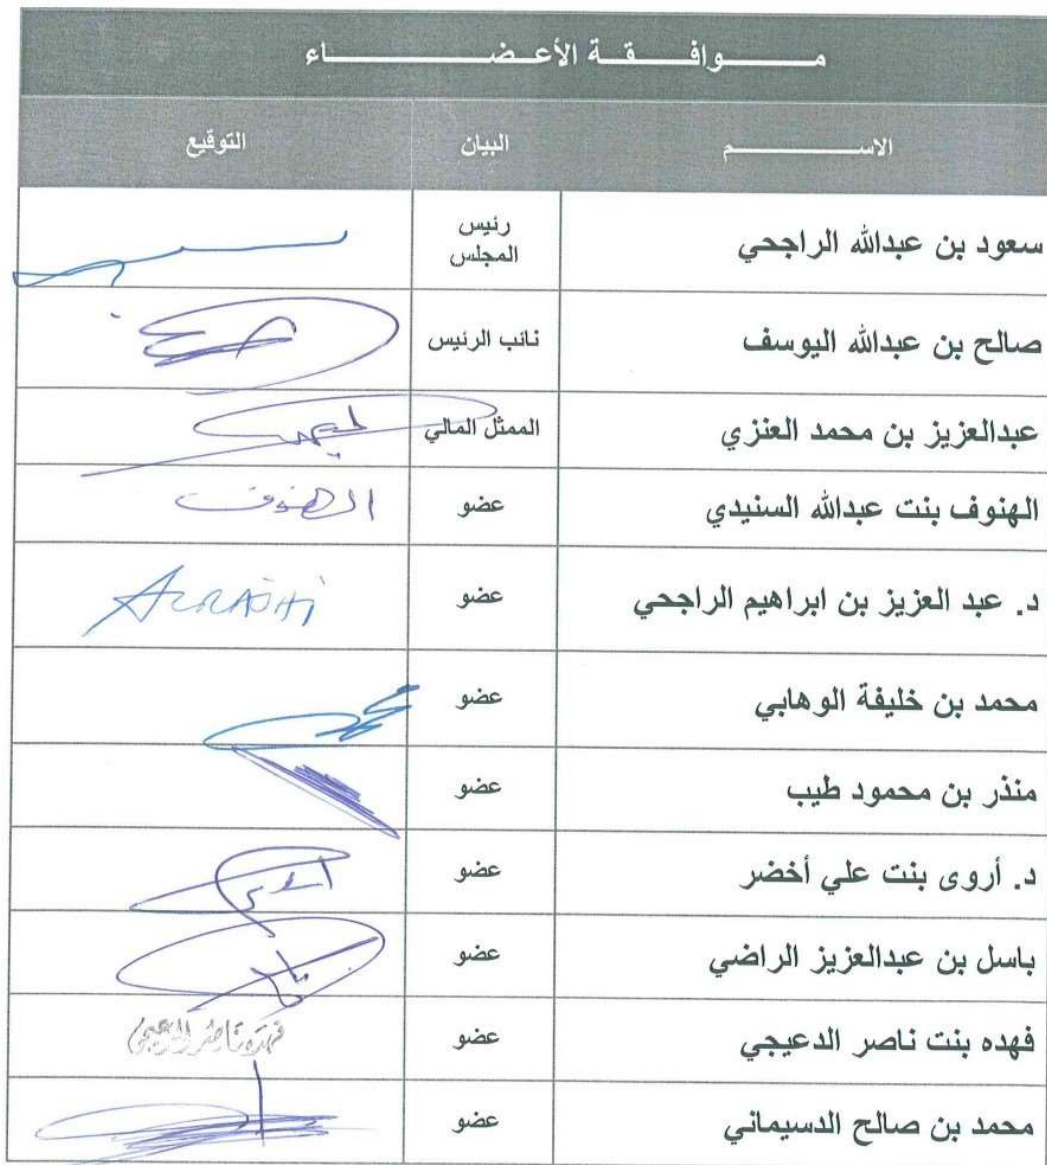 مـــوافـــقـــة الأعـــضـــاء
الاســـم البيان التوقيع
سعود بن عبدالله الراجحي رئيس المجلس
صالح بن عبدالله اليوسف نائب الرئيس
عبدالعزيز بن محمد العنزي الممثل المالي
الهنوف بنت عبدالله السنيدي عضو الهنوف
د. عبد العزيز بن ابراهيم الراجحي عضو ALRAJHi
محمد بن خليفة الوهابي عضو
منذر بن محمود طيب عضو
د. أروى بنت علي أخضر عضو
باسل بن عبدالعزيز الراضي عضو
فهده بنت ناصر الدعيجي عضو فهده ناصر الدعيجي
محمد بن صالح الدسيماني عضو